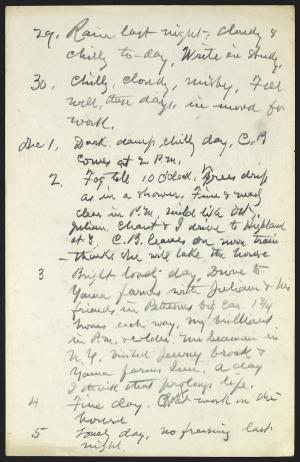 29. Rain last night, cloudy &
chilly to-day, Write in study,
30. Chilly, cloudy, misty, Feel
well, these days, in mood for
work.
Dec 1, Dark damp chilly day, C.B
comes at 2 P.M.
2. Fog till 10 o'clock, trees drip
as in a shower, Fine & very
clear in P.M, mild like Oct,
Julian, & I drive to Highland
at 3, C.B. leaves on noon train
– thinks she will take the house
3 Bright lovely day, Drive to
Yama farms with Julian & his
friends in big car. 1 3/4
hours each way, very brilliant
in P.M. & colder. Mr Seaman in
N.Y. Visited Jenny brook &
Yama farms Inn. A day
I think that prolongs life.
4 Fine day. work on the
house
5 Lovely day, no freezing last
night.